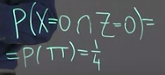 P(X=0 ∩ Z=0)=
=P(TT)=1/4